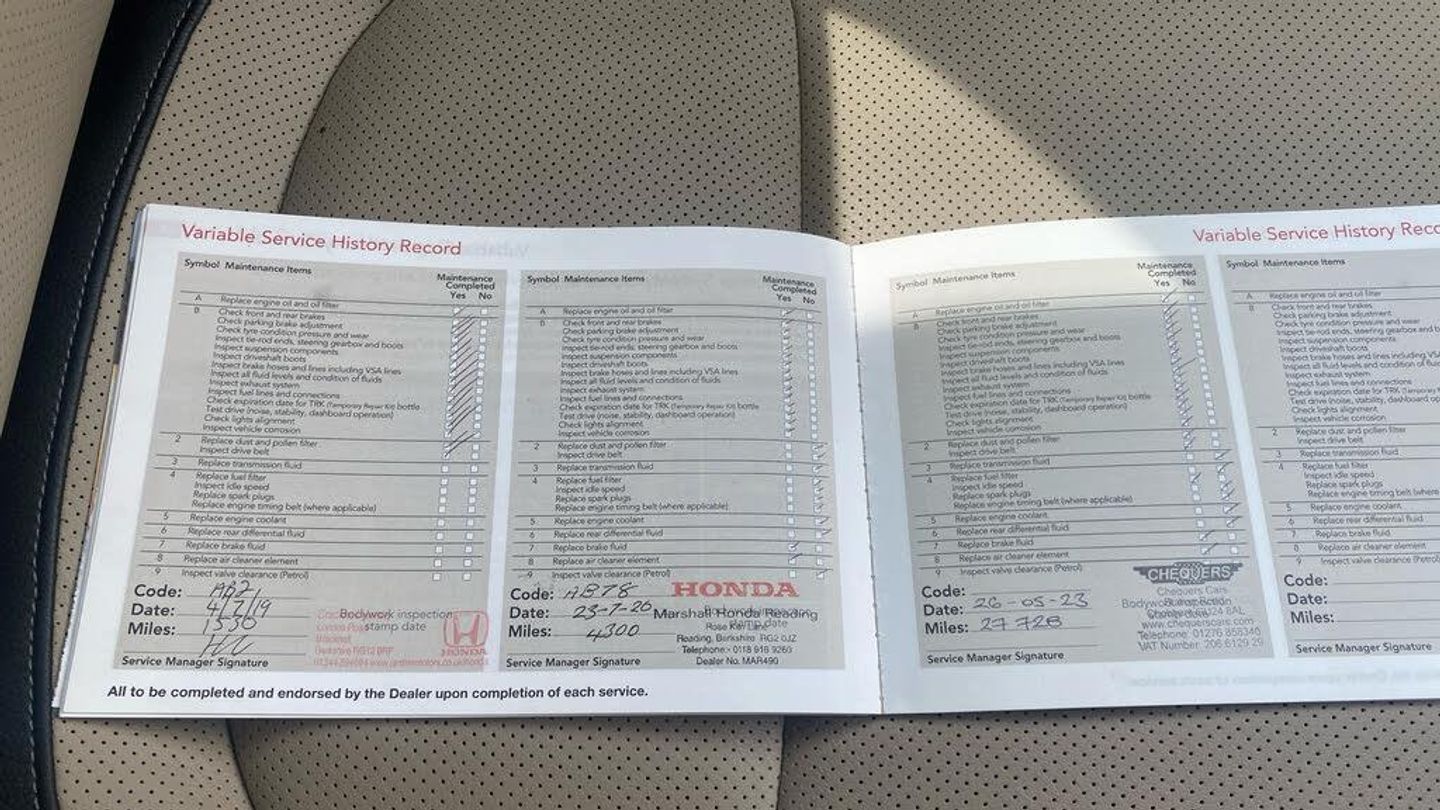 Variable Service History Record
Symbol Maintenance Items
Maintenance
Completed
Yes No
A Replace engine oil and oil filter
B Check front and rear brakes
Check parking brake adjustment
Check tyre condition pressure and wear
Inspect tie-rod ends, steering gearbox and boots
Inspect suspension components
Inspect driveshaft boots
Inspect brake hoses and lines including VSA lines
Inspect all fluid levels and condition of fluids
Inspect exhaust system
Inspect fuel lines and connections
Check expiration date for TRK (Temporary Repair Kit) bottle
Test drive (noise, stability, dashboard operation)
Check lights alignment
Inspect vehicle corrosion
2 Replace dust and pollen filter
Inspect drive belt
3 Replace transmission fluid
4 Replace fuel filter
Inspect idle speed
Replace spark plugs
Replace engine timing belt (where applicable)
5 Replace engine coolant
6 Replace rear differential fluid
7 Replace brake fluid
8 Replace air cleaner element
9 Inspect valve clearance (Petrol)
Code:
Date: 4/7/19
Miles: 1530
Service Manager Signature
Bodywork inspection
stamp date
HONDA
Symbol Maintenance Items
Maintenance
Completed
Yes No
A Replace engine oil and oil filter
B Check front and rear brakes
Check parking brake adjustment
Check tyre condition pressure and wear
Inspect tie-rod ends, steering gearbox and boots
Inspect suspension components
Inspect driveshaft boots
Inspect brake hoses and lines including VSA lines
Inspect all fluid levels and condition of fluids
Inspect exhaust system
Inspect fuel lines and connections
Check expiration date for TRK (Temporary Repair Kit) bottle
Test drive (noise, stability, dashboard operation)
Check lights alignment
Inspect vehicle corrosion
2 Replace dust and pollen filter
Inspect drive belt
3 Replace transmission fluid
4 Replace fuel filter
Inspect idle speed
Replace spark plugs
Replace engine timing belt (where applicable)
5 Replace engine coolant
6 Replace rear differential fluid
7 Replace brake fluid
8 Replace air cleaner element
9 Inspect valve clearance (Petrol)
Code: AB78
Date: 23-7-20
Miles: 4300
Service Manager Signature
HONDA
Marshall Honda Reading
Rose Kiln Lane
Reading, Berkshire RG2 0JZ
Telephone: 0118 918 9263
Dealer No. MAR490
All to be completed and endorsed by the Dealer upon completion of each service.
Variable Service History Reco
Symbol Maintenance Items
Maintenance
Completed
Yes No
A Replace engine oil and oil filter
B Check front and rear brakes
Check parking brake adjustment
Check tyre condition pressure and wear
Inspect tie-rod ends, steering gearbox and boots
Inspect suspension components
Inspect driveshaft boots
Inspect brake hoses and lines including VSA lines
Inspect all fluid levels and condition of fluids
Inspect exhaust system
Inspect fuel lines and connections
Check expiration date for TRK (Temporary Repair Kit) bottle
Test drive (noise, stability, dashboard operation)
Check lights alignment
Inspect vehicle corrosion
2 Replace dust and pollen filter
Inspect drive belt
3 Replace transmission fluid
4 Replace fuel filter
Inspect idle speed
Replace spark plugs
Replace engine timing belt (where applicable)
5 Replace engine coolant
6 Replace rear differential fluid
7 Replace brake fluid
8 Replace air cleaner element
9 Inspect valve clearance (Petrol)
Code:
Date: 26-05-23
Miles: 27728
Service Manager Signature
CHEQUERS
Chequers Cars
www.chequerscars.com
Telephone: 01276 858340
VAT Number: 206 6129 29
Symbol Maintenance Items
A Replace engine oil and oil filter
B Check front and rear brakes
Check parking brake adjustment
Check tyre condition pressure and wear
Inspect tie-rod ends, steering gearbox and b
Inspect suspension components
Inspect driveshaft boots
Inspect brake hoses and lines including VSA
Inspect all fluid levels and condition of fluid
Inspect exhaust system
Inspect fuel lines and connections
Check expiration date for TRK (Temporary Rep
Test drive (noise, stability, dashboard op
Check lights alignment
Inspect vehicle corrosion
2 Replace dust and pollen filter
Inspect drive belt
3 Replace transmission fluid
4 Replace fuel filter
Inspect idle speed
Replace spark plugs
Replace engine timing belt (where
5 Replace engine coolant
6 Replace rear differential fluid
7 Replace brake fluid
8 Replace air cleaner element
9 Inspect valve clearance (Petrol)
Code:
Date:
Miles:
Service Manager Signature